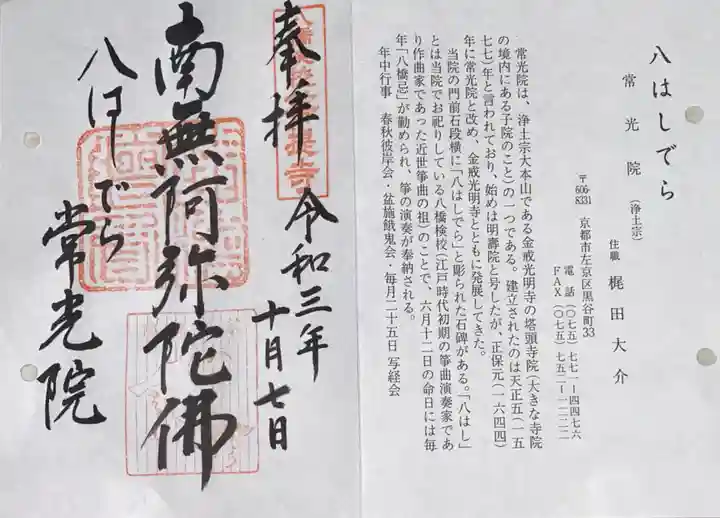 八はしでら
常光院（浄土宗）
住職 梶田大介
〒606-8331 京都市左京区黒谷町33
電話（〇七五）七七一ー四四七六
ＦＡＸ（〇七五）七五二ー一二二二
常光院は、浄土宗大本山である金戒光明寺の塔頭寺院（大きな寺院
の境内にある子院のこと）の一つである。建立されたのは天正五（一五
七七）年と言われており、始めは明壽院と号したが、正保元（一六四四）
年に常光院と改め、金戒光明寺とともに発展してきた。
当院の門前石段横に「八はしでら」と彫られた石碑がある。「八はし」
とは当院でお祀りしている八橋検校（江戸時代初期の箏曲演奏家であ
り作曲家であった近世箏曲の祖）のことで、六月十二日の命日には毎
年「八橋忌」が勤められ、箏の演奏が奉納される。
年中行事 春秋彼岸会・盆施餓鬼会・毎月二十五日 写経会
奉拝
令和三年
十月七日
南無阿弥陀佛
八はしでら
常光院